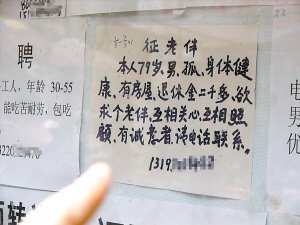 征老伴
本人79岁、男、孤、身体健
康、有房屋、退休金二千多、欲
求个老伴、互相关心、互相照
顾、有诚意者、请电话联系。
1319
聘
工人，年龄 30-55
能吃苦耐劳，包吃
3220
电
男
优